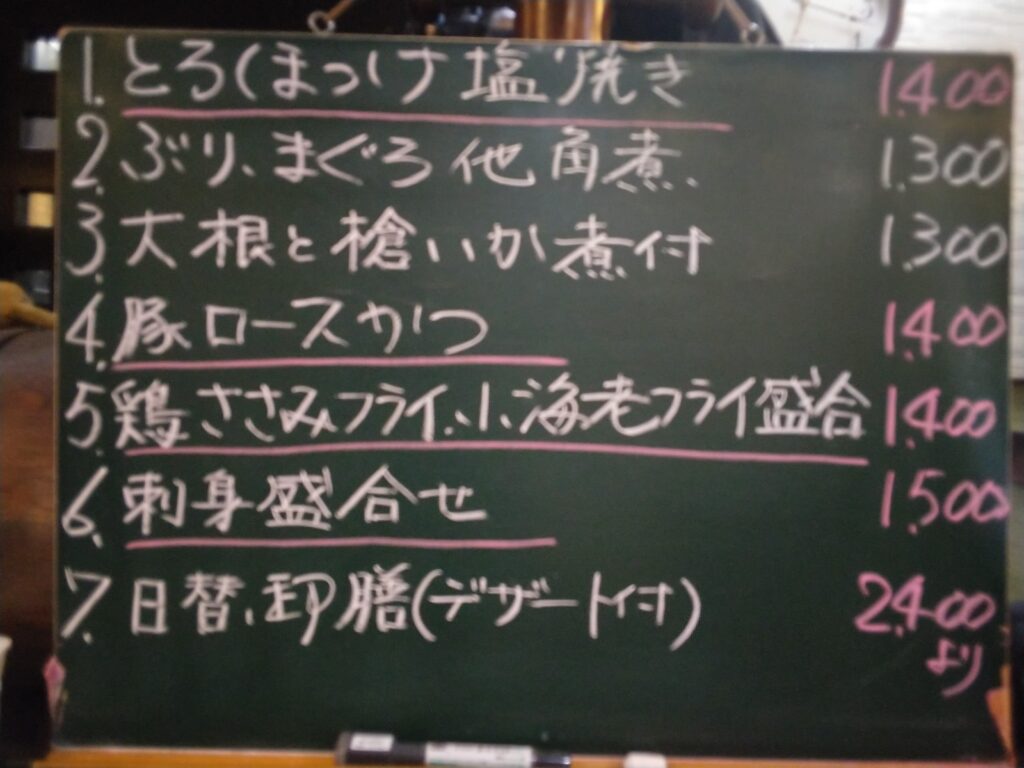 1. とろほっけ塩焼き 1.400
2. ぶり、まぐろ他角煮 1.300
3. 大根と槍いか煮付 1.300
4. 豚ロースかつ 1.400
5. 鶏ささみフライ、小海老フライ盛合 1.400
6. 刺身盛合せ 1.500
7. 日替、御膳(デザート付) 2.400
より